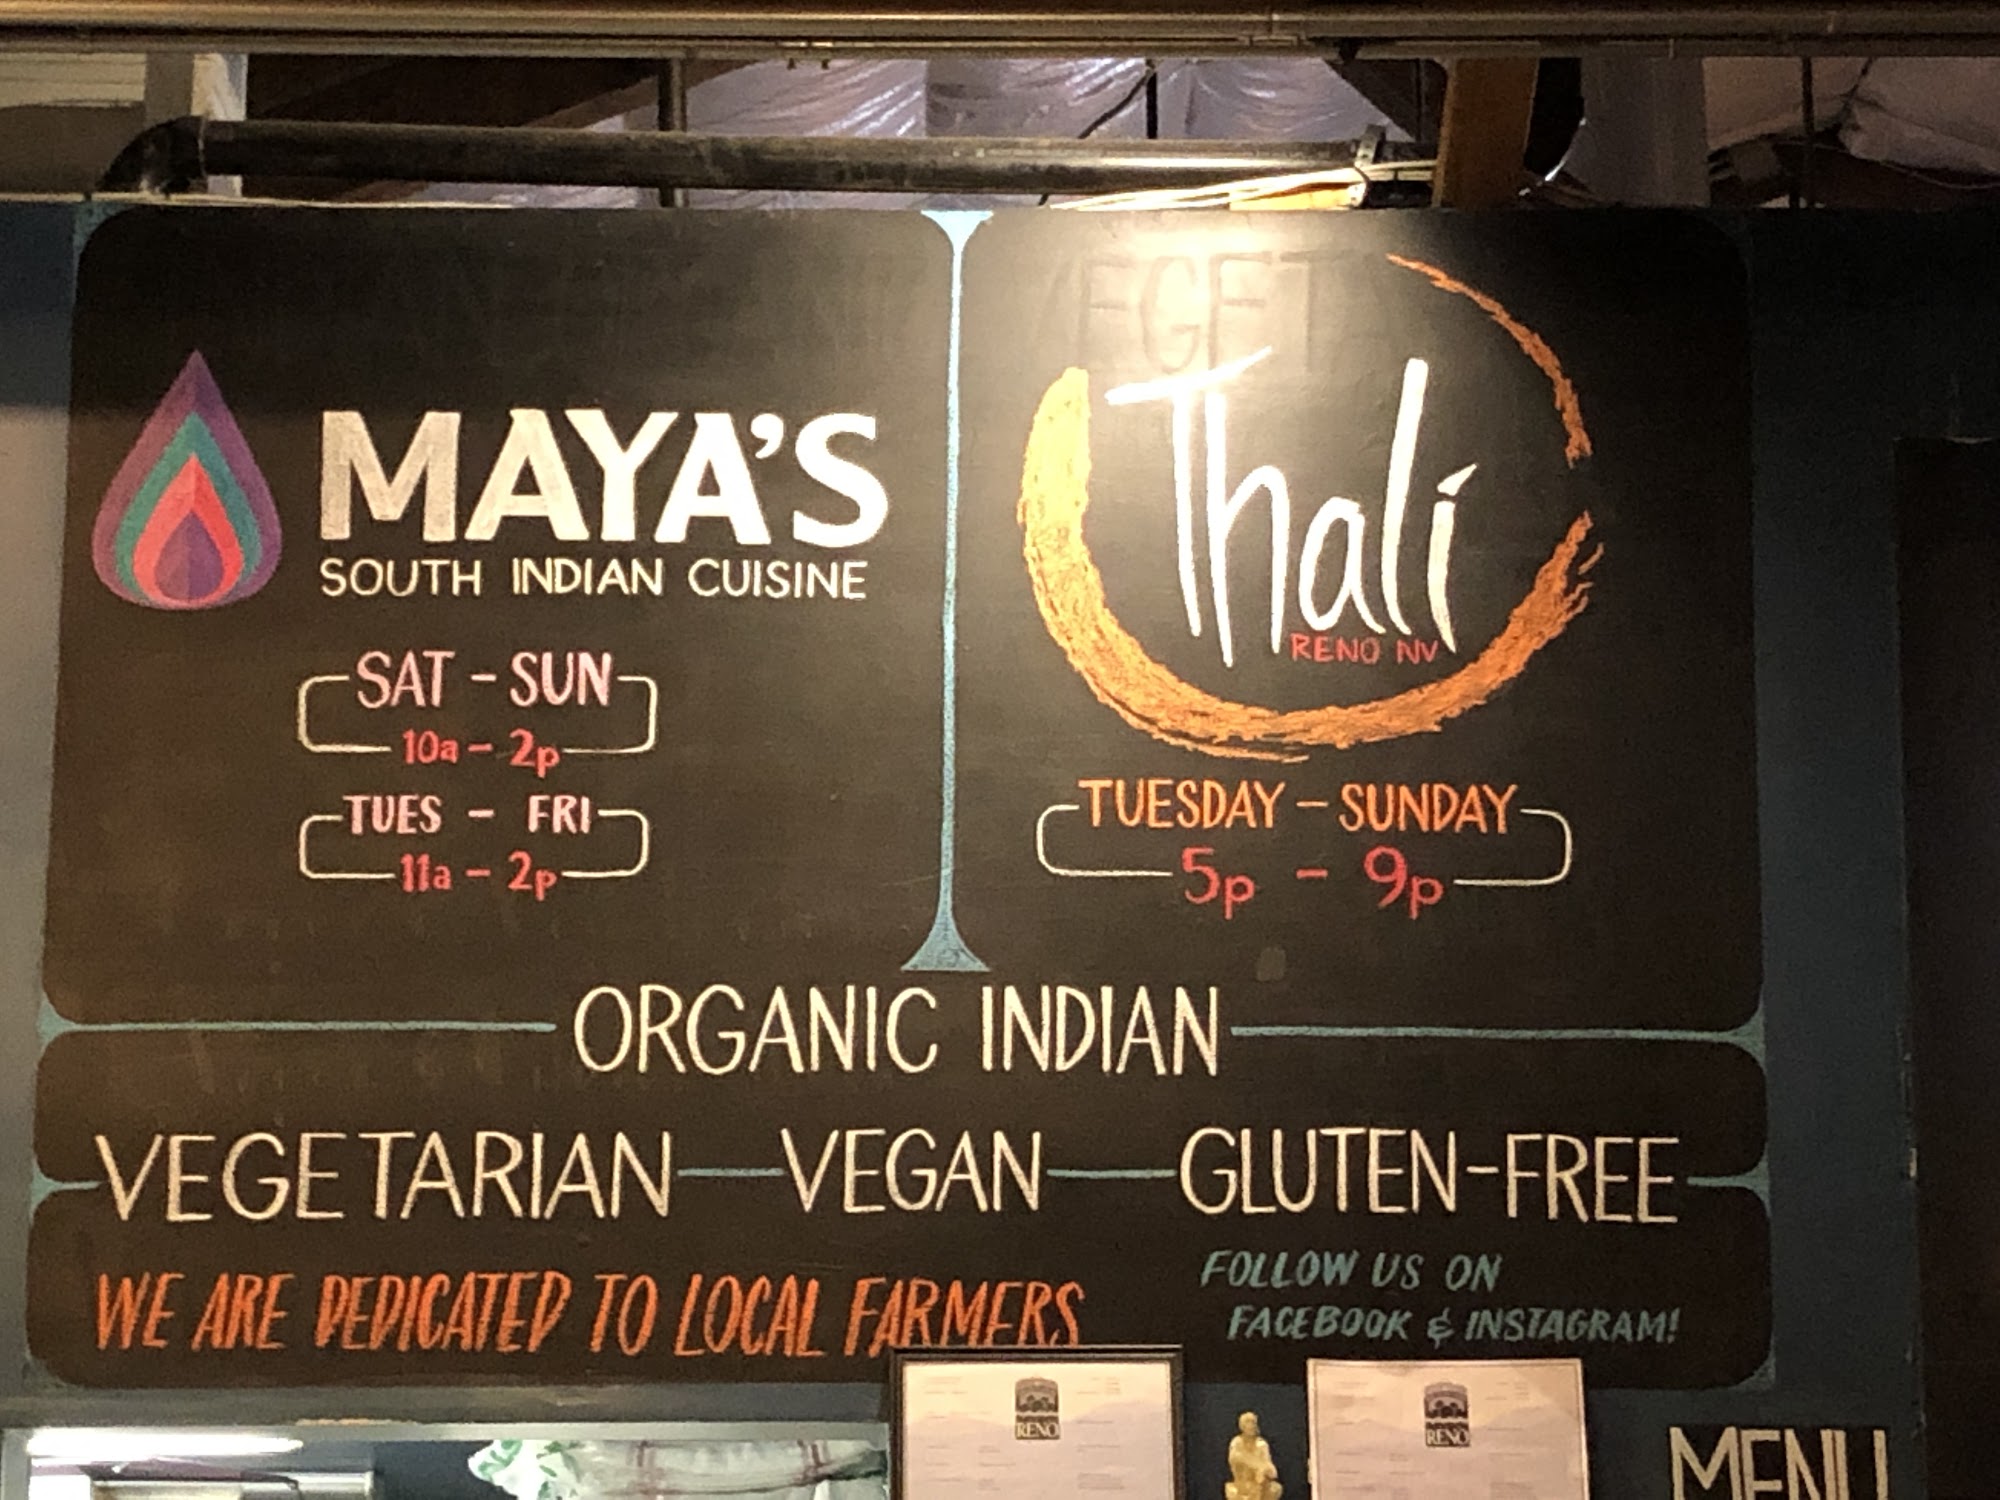 MAYA'S
SOUTH INDIAN CUISINE
SAT - SUN
10a - 2p
TUES - FRI
11a - 2p
EGET
Thali
RENO NV
TUESDAY - SUNDAY
5p - 9p
ORGANIC INDIAN
VEGETARIAN - VEGAN - GLUTEN-FREE
WE ARE DEDICATED TO LOCAL FARMERS
FOLLOW US ON
FACEBOOK & INSTAGRAM!
RENO
RENO
MENU